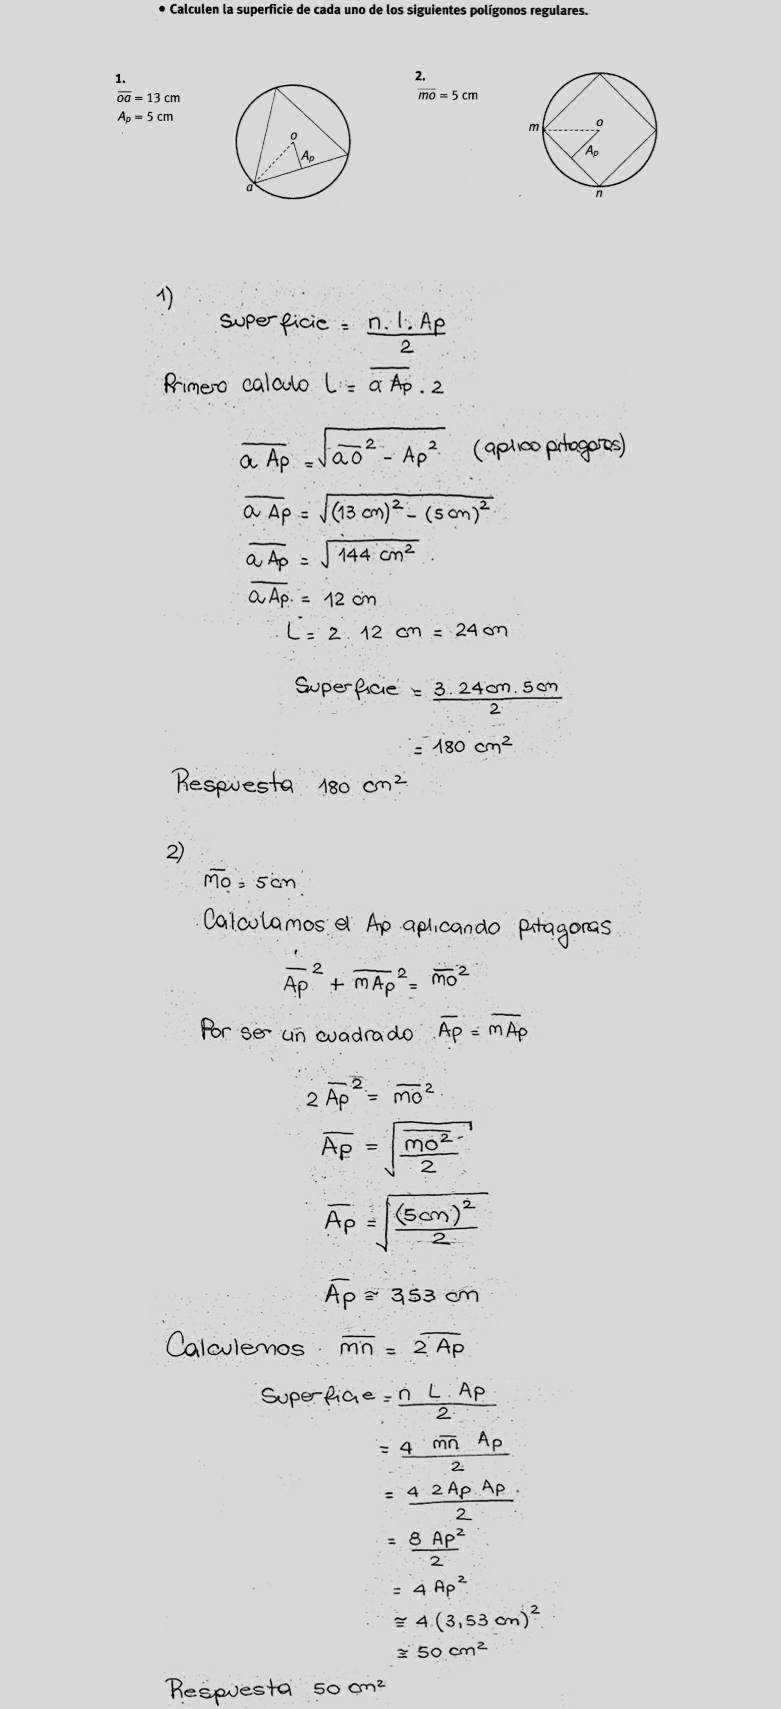 • Calculen la superficie de cada uno de los siguientes polígonos regulares.
1.
oa = 13 cm
Ap = 5 cm
o
Ap
a
2.
mo = 5 cm
m
o
Ap
n
1)
Superficie = n. l. Ap / 2
Primero calculo L = a Ap . 2
a Ap = √(ao² - Ap²) (aplico pitagoras)
a Ap = √((13 cm)² - (5 cm)²)
a Ap = √(144 cm²)
a Ap = 12 cm
L = 2. 12 cm = 24 cm
Superficie = 3. 24cm. 5cm / 2
= 180 cm²
Respuesta 180 cm²
2)
mo = 5 cm
Calculamos el Ap aplicando pitagoras
Ap² + mAp² = mo²
Por ser un cuadrado Ap = mAp
2 Ap² = mo²
Ap = √(mo² / 2)
Ap = √((5cm)² / 2)
Ap ≅ 3,53 cm
Calculemos mn = 2 Ap
Superficie = n L Ap / 2
= 4 mn Ap / 2
= 4 2 Ap Ap / 2
= 8 Ap² / 2
= 4 Ap²
≅ 4 (3,53 cm)²
≅ 50 cm²
Respuesta 50 cm²